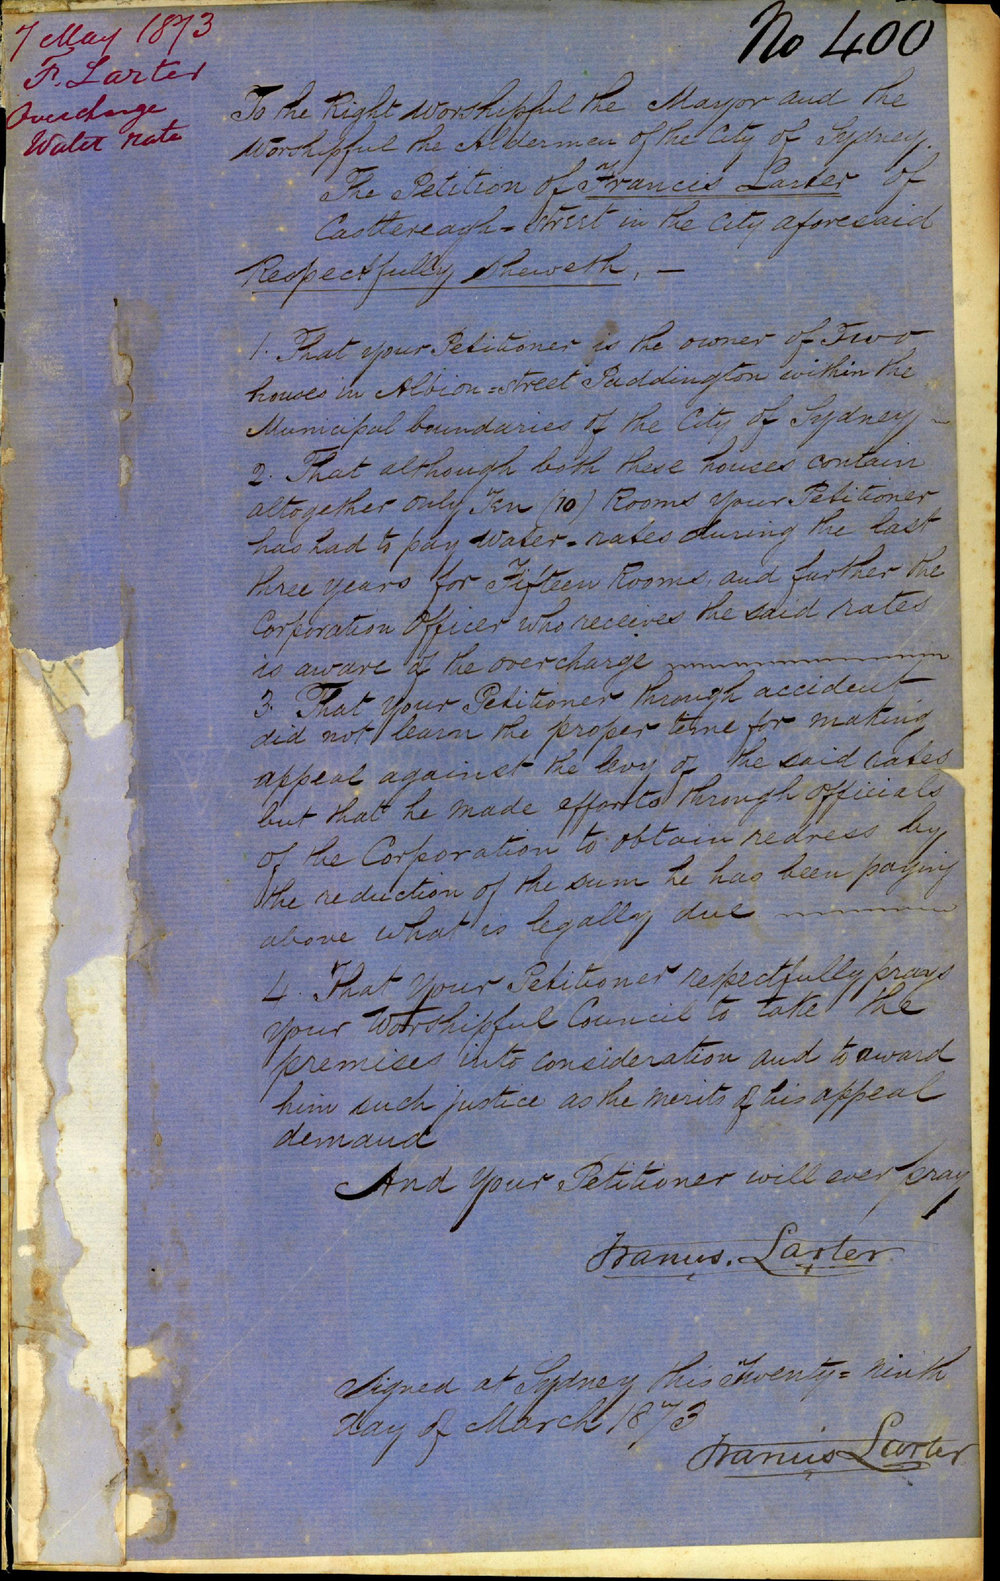 7 May 1873
F. Larter
Overcharge
Water rate
No 400
To the Right Worshipful the Mayor and the
Worshipful the Aldermen of the City of Sydney.
The Petition of Francis Larter of
Castlereagh=Street in the City aforesaid
Respectfully Sheweth, —
1. That your Petitioner is the owner of Two
houses in Albion=Street Paddington within the
Municipal boundaries of the City of Sydney
2. That although both these houses contain
altogether only Ten (10) Rooms your Petitioner
has had to pay Water=rates during the last
three years for Fifteen Rooms, and further the
Corporation Officer who receives the said rates
is aware of the overcharge
3. That your Petitioner through accident
did not learn the proper time for making
appeal against the levy of the said rates
but that he made efforts through Officials
of the Corporation to obtain redress by
the reduction of the sum he has been paying
above what is legally due
4. That your Petitioner respectfully prays
your Worshipful Council to take the
premises into consideration and to award
him such justice as the merits of his appeal
demand
And your Petitioner will ever pray
Francis. Larter
Signed at Sydney this Twenty=ninth
day of March 1873
Francis Larter